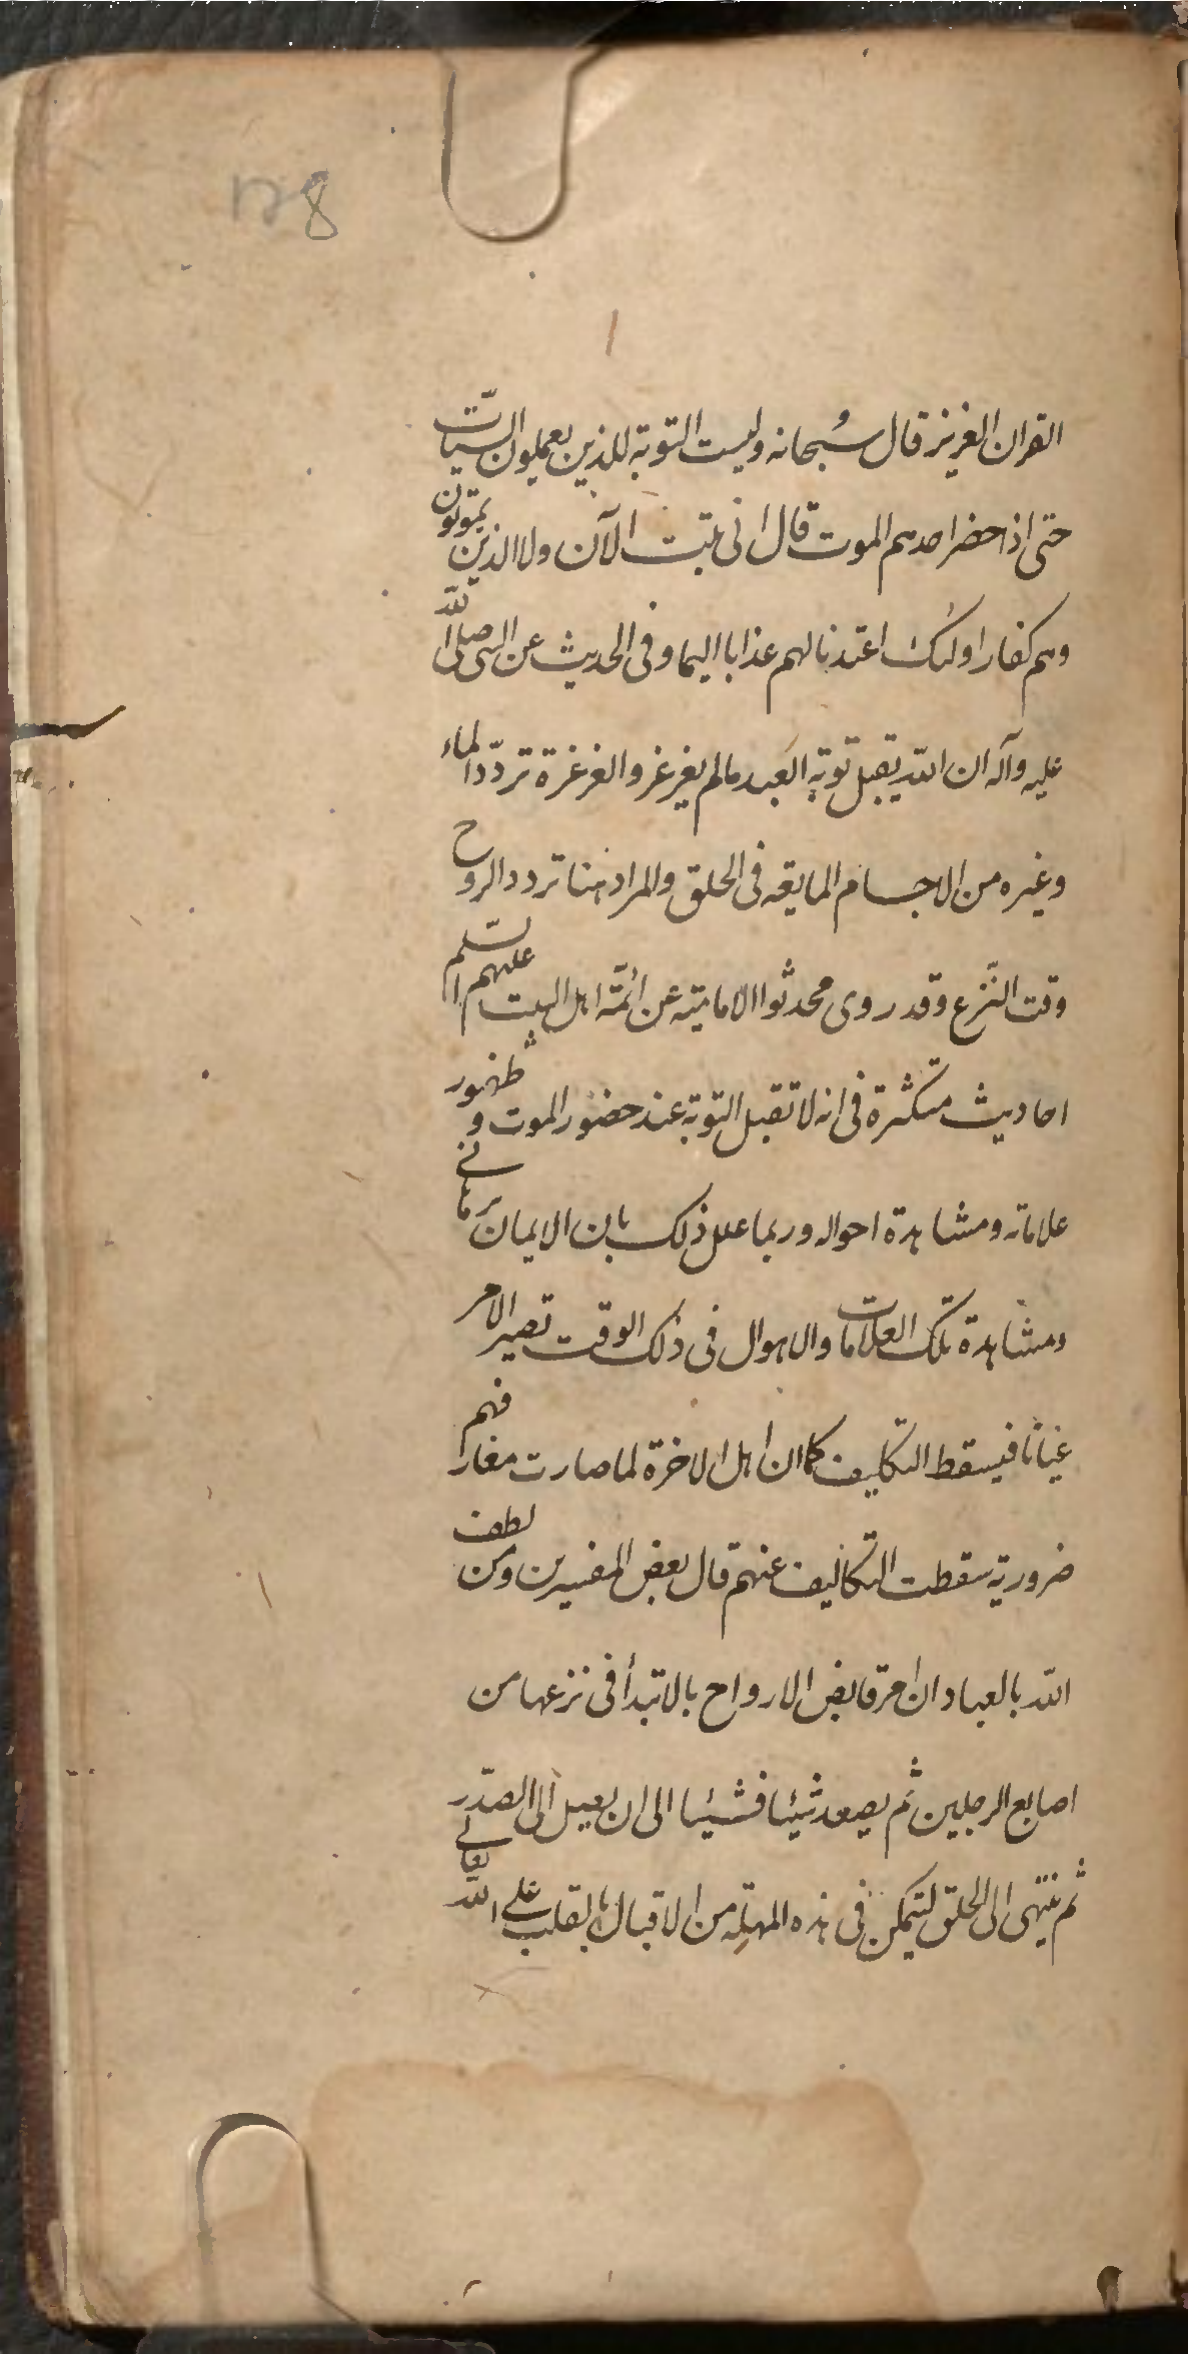 128
القران العزيز قال سُبحانه وليست التوبة للذين يعملون السيّات
حتى اذا حضر احدهم الموت قال انى تبت الآن ولا الذين يموتون
وهم كفار اولئك اعتدنا لهم عذابا اليما وفى الحديث عن النبى صلى الله
عليه وآله ان الله يقبل توبة العبد مالم يغرغر والغرغرة تردّد الماء
وغيره من الاجسام المايعه فى الحلق والمراد هنا تردد الروح
وقت النّزع وقد روى محدثوا الامامية عن ائمّة اهل البيت عليهم السّلم
احاديث متكثرة فى انه لا تقبل التوبة عند حضور الموت و ظهور
علاماته ومشاهدة احواله وربما علل ذلك بان الايمان برهانے
ومشاهدة تلك العلامات والاهوال فى ذلك الوقت تصير الامر
عيانًا فيسقط التكليف كما ان اهل الاخرة لما صارت معارفهم
ضرورية سقطت التكاليف عنهم قال بعض المفسرين ومن لطف
الله بالعباد ان امر قابض الارواح بالابتدأ فى نزعها من
اصابع الرجلين ثم يصعد شيئا فشيئا الى ان يصل الى الصدّر
ثم ينتهى الى الحلق ليتمكن فى هذه المهلة من الاقبال بالقلب على الله تعالے